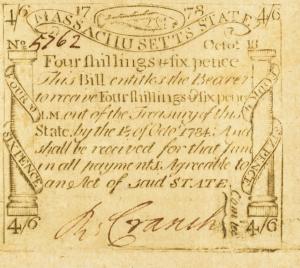 4/6 17 78 4/6
MASSACHUSETTS STATE
No 5762 Octo. 18
Four shillings & six pence
This Bill entitles the Bearer
to receive Four shillings & six pence
L.M. out of the Treasury of this
State, by the 1st. of Octo' 1784. And
shall be received for that sum
in all payments, Agreeable to
an Act of said STATE.
FOUR SH
SIX PENCE
SIX PENCE
4/6 R Cranch Comtee 4/6